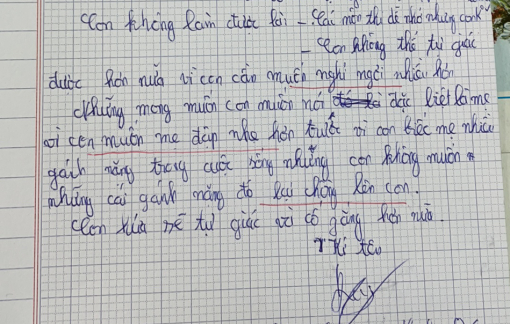 Con không làm được lời - Các môn thi dễ nhớ nhưng con k
- Con không thể tự giác
được hơn nữa vì con cần muốn nghỉ ngơi nhiều hơn
Những mong muốn con muốn nói đặc biệt là mẹ
vì con muốn mẹ đáp nhẹ hơn trước vì con biết mẹ nhiều
gánh nặng trong cuộc sống nhưng con không muốn
những cái gánh nặng đó lại chồng lên con.
Con hứa sẽ tự giác và cố gắng hơn nữa.
Kí tên